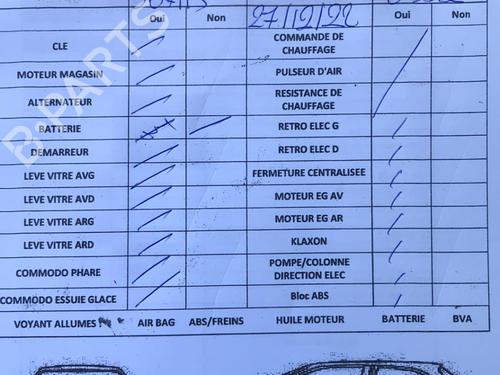 Oui Non 27/12/22 Oui Non
CLE COMMANDE DE CHAUFFAGE
MOTEUR MAGASIN PULSEUR D'AIR
ALTERNATEUR RESISTANCE DE CHAUFFAGE
BATTERIE RETRO ELEC G
DEMARREUR RETRO ELEC D
LEVE VITRE AVG FERMETURE CENTRALISEE
LEVE VITRE AVD MOTEUR EG AV
LEVE VITRE ARG MOTEUR EG AR
LEVE VITRE ARD KLAXON
COMMODO PHARE POMPE/COLONNE DIRECTION ELEC
COMMODO ESSUIE GLACE Bloc ABS
VOYANT ALLUMES AIR BAG ABS/FREINS HUILE MOTEUR BATTERIE BVA
B-PARTS